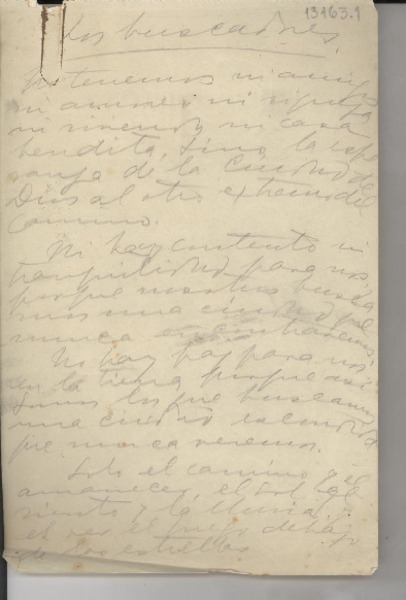 13163.1
Los buscadores.
No tenemos ni amigos
ni amores ni riqueza
ni vivienda, ni casa
bendita, sino la espe
ranza de la Ciudad de
Dios al otro extremo del
camino.
Ni hay contento ni
tranquilidad para nos
porque nosotros busca
mos una ciudad que
nunca encontraremos.
No hay paz para nos
en la tierra porque
somos los que buscamos
una ciudad escondida
que nunca veremos.
Solo el camino y el
amanecer, el sol, el
viento y la lluvia
el fuego debajo
de las estrellas